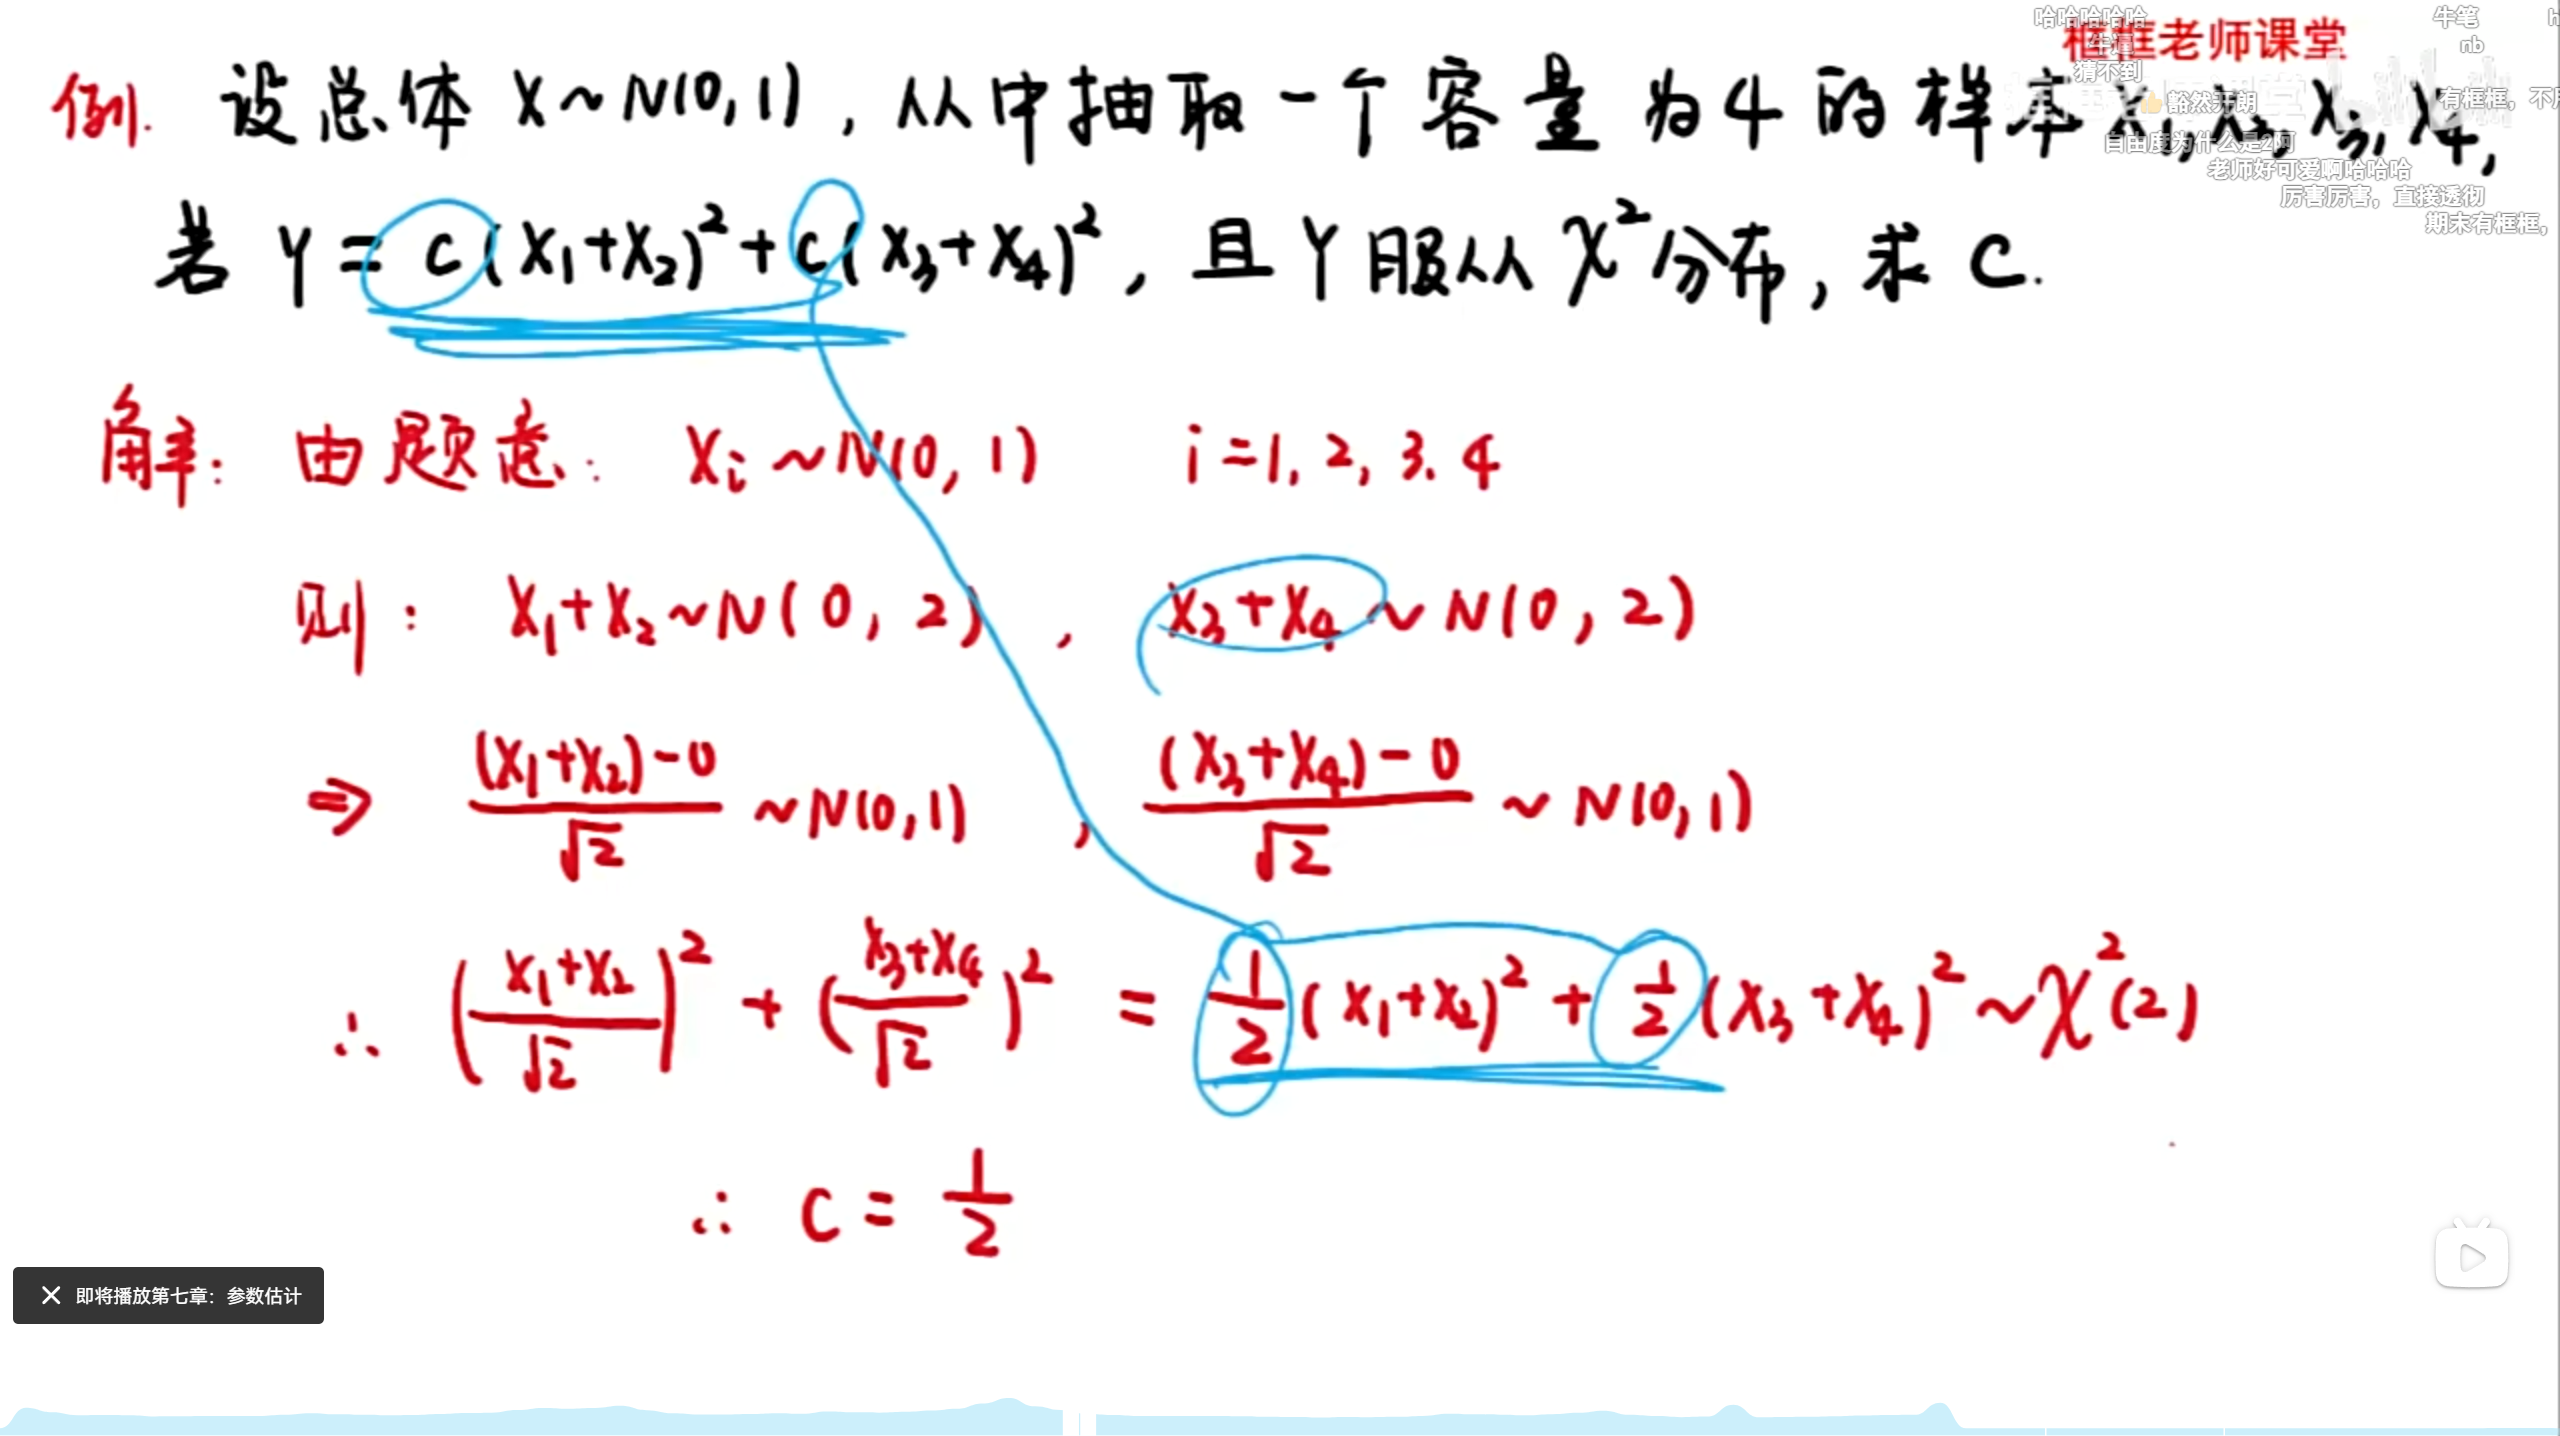 框框老师课堂
哈哈哈哈哈
牛笔
牛逼
nb
猜不到
豁然开朗
自由度为什么是2阿
老师好可爱啊哈哈哈
厉害厉害，直接透彻
期末有框框，
例. 设总体 X~N(0,1), 从中抽取一个容量为4的样本 X₁, X₂, X₃, X₄,
若 Y = c(X₁+X₂)² + c(X₃+X₄)², 且Y服从 χ²分布, 求 C.
解: 由题意: Xᵢ ~ N(0, 1) i=1, 2, 3. 4
则: X₁+X₂ ~ N(0, 2), X₃+X₄ ~ N(0, 2)
⇒ ((X₁+X₂)-0)/√2 ~ N(0,1), ((X₃+X₄)-0)/√2 ~ N(0,1)
∴ ((X₁+X₂)/√2)² + ((X₃+X₄)/√2)² = 1/2 (X₁+X₂)² + 1/2 (X₃+X₄)² ~ χ²(2)
∴ C = 1/2
即将播放第七章：参数估计